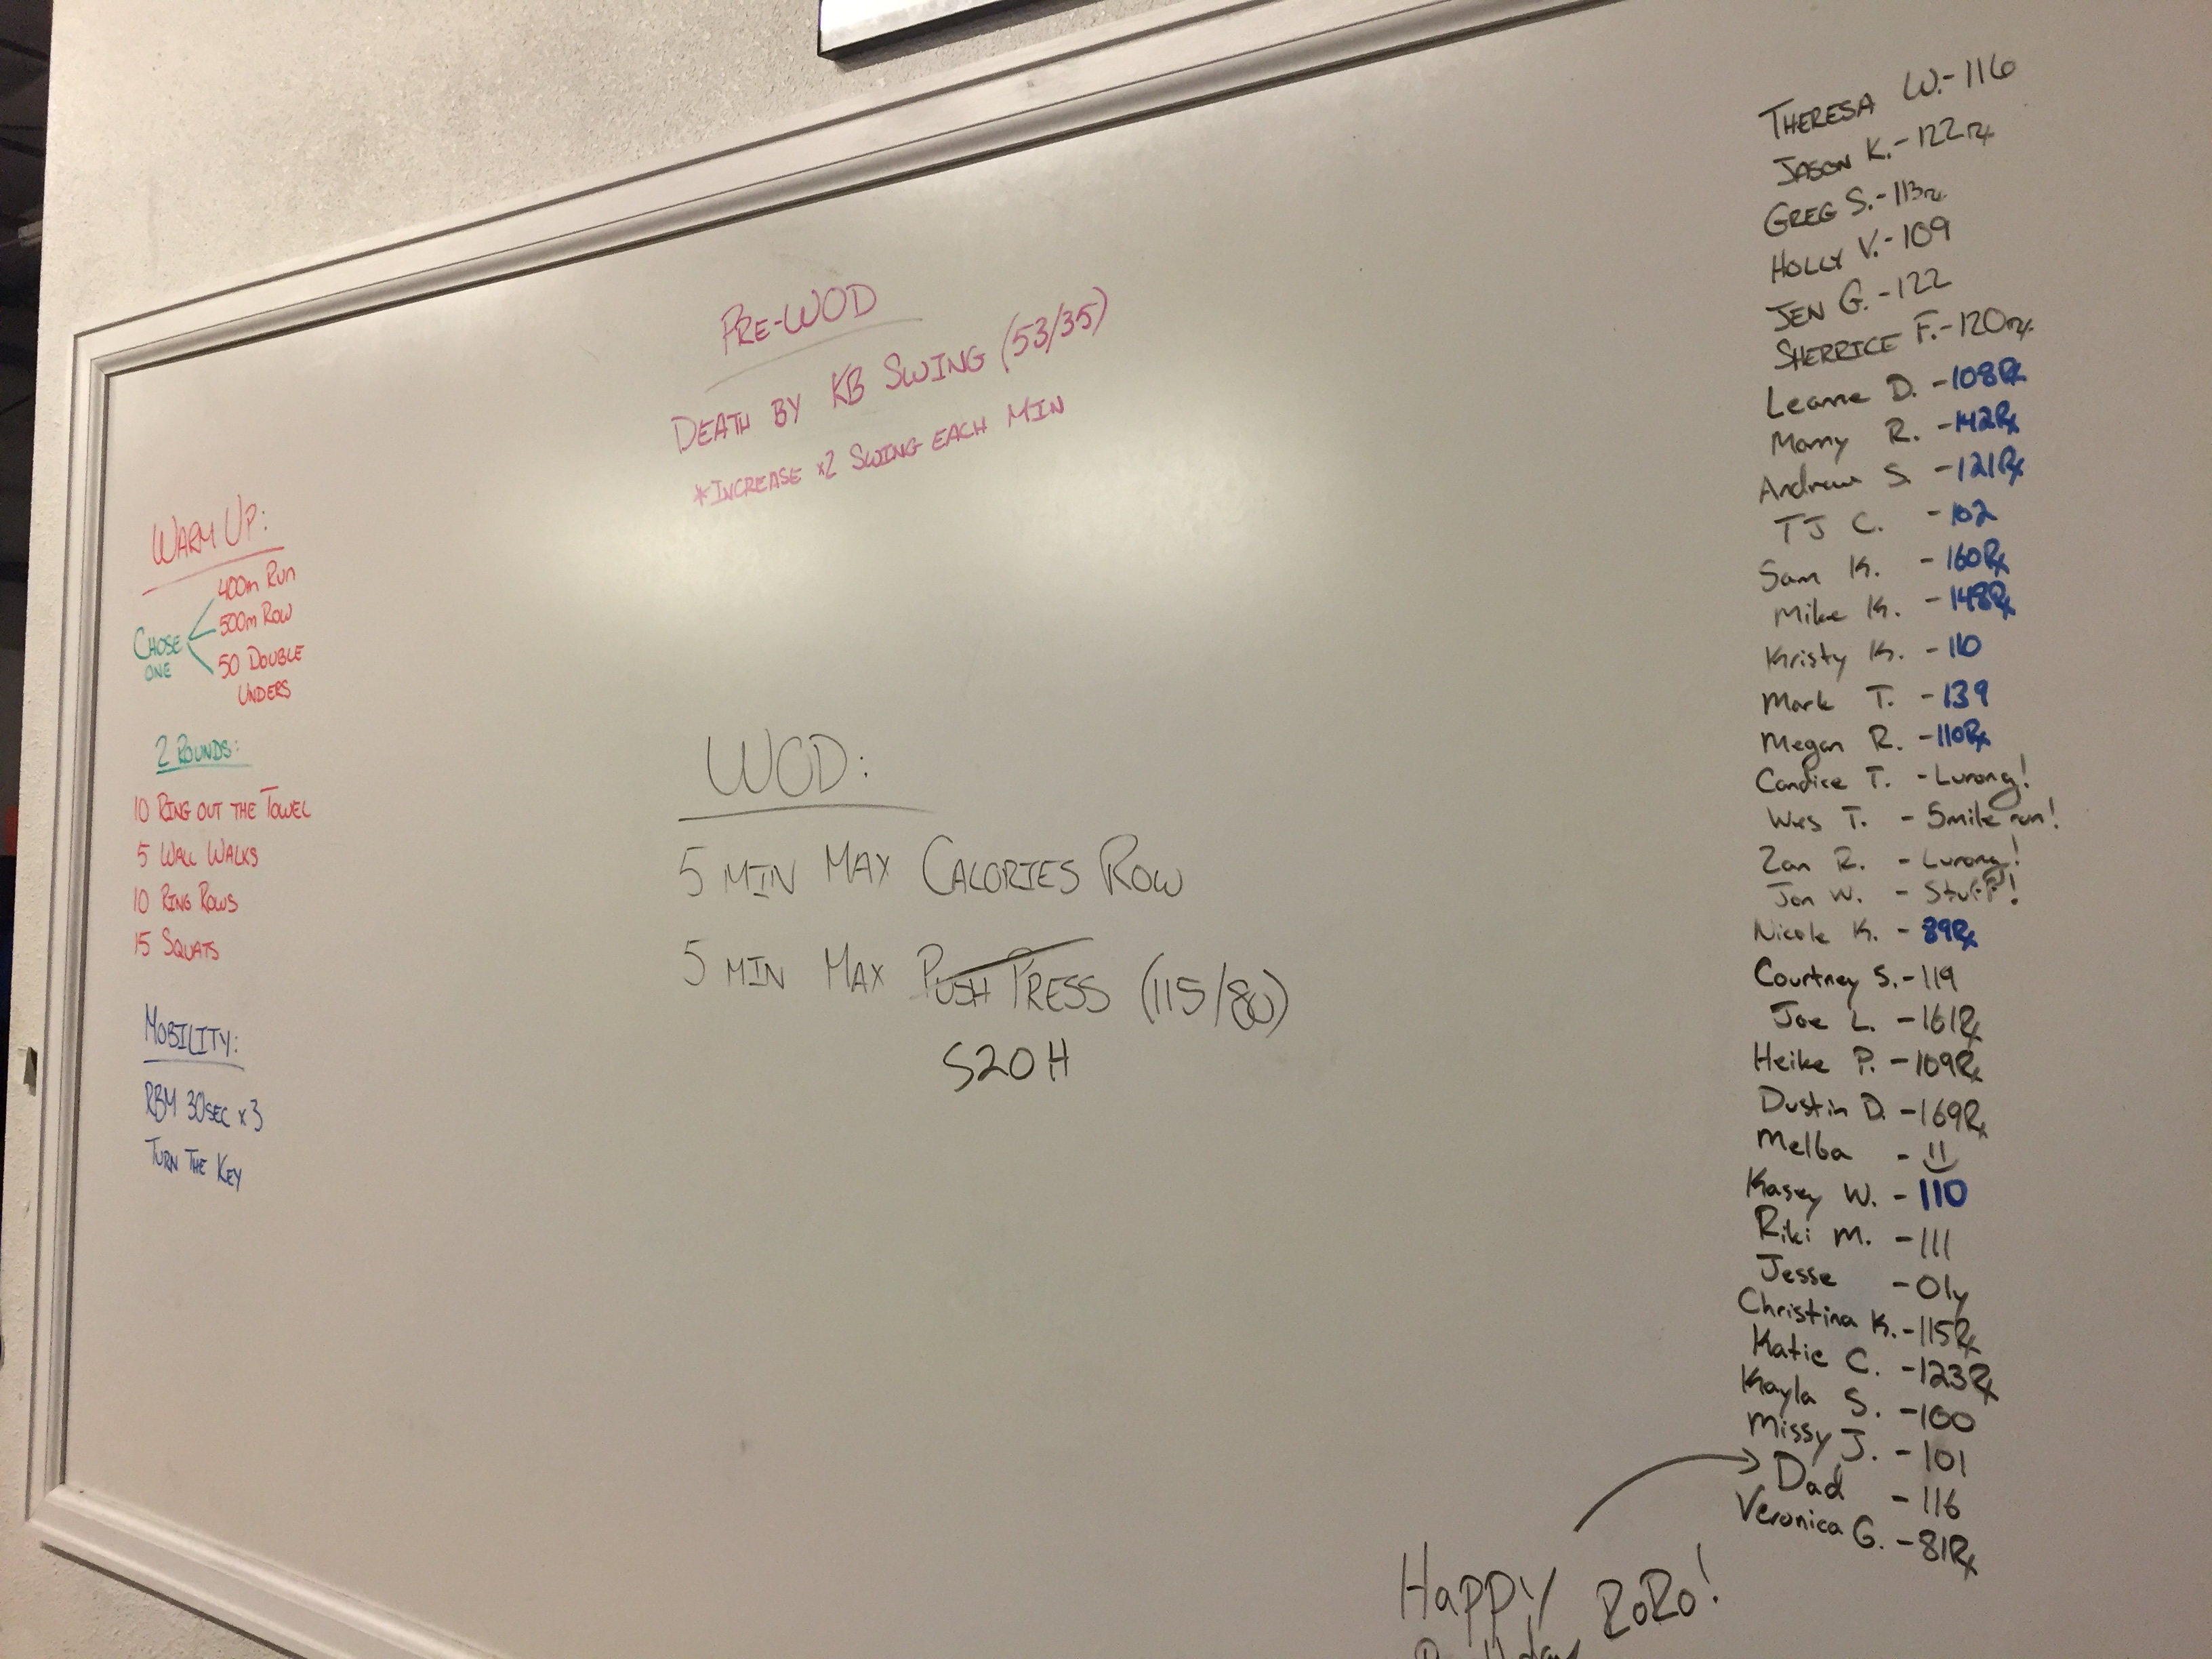 WARM UP:
CHOSE ONE
400m RUN
500m ROW
50 DOUBLE
UNDERS
2 ROUNDS:
10 RING OUT THE TOWEL
5 WALL WALKS
10 RING ROWS
15 SQUATS
MOBILITY:
RBM 30SEC x3
TURN THE KEY
PRE-WOD
DEATH BY KB SWING (53/35)
*INCREASE x2 SWING EACH MIN
WOD:
5 MIN MAX CALORIES ROW
5 MIN MAX PUSH PRESS (115/80)
S2OH
THERESA W.-116
JASON K.-122rx
GREG S.-113rx
HOLLY V.-109
JEN G.-122
SHERRICE F.-120rx
Leanne D. -108Rx
Manny R. -142Rx
Andrew S. -121Rx
TJ C. -102
Sam K. -160Rx
Mike K. -148Rx
Kristy K. -110
Mark T. -139
Megan R. -110Rx
Candice T. -Lurong!
Wes T. -5mile run!
Zan R. -Lurong!
Jon W. -Stuff!
Nicole K. -89Rx
Courtney S.-119
Joe L. -161Rx
Heike P. -109Rx
Dustin D. -169Rx
Melba -
Kasey W. -110
Riki M. -111
Jesse -Oly
Christina K.-115Rx
Katie C. -123Rx
Kayla S. -100
Missy J. -101
Dad -116
Veronica G. -81Rx
Happy RoRo!
Birthday